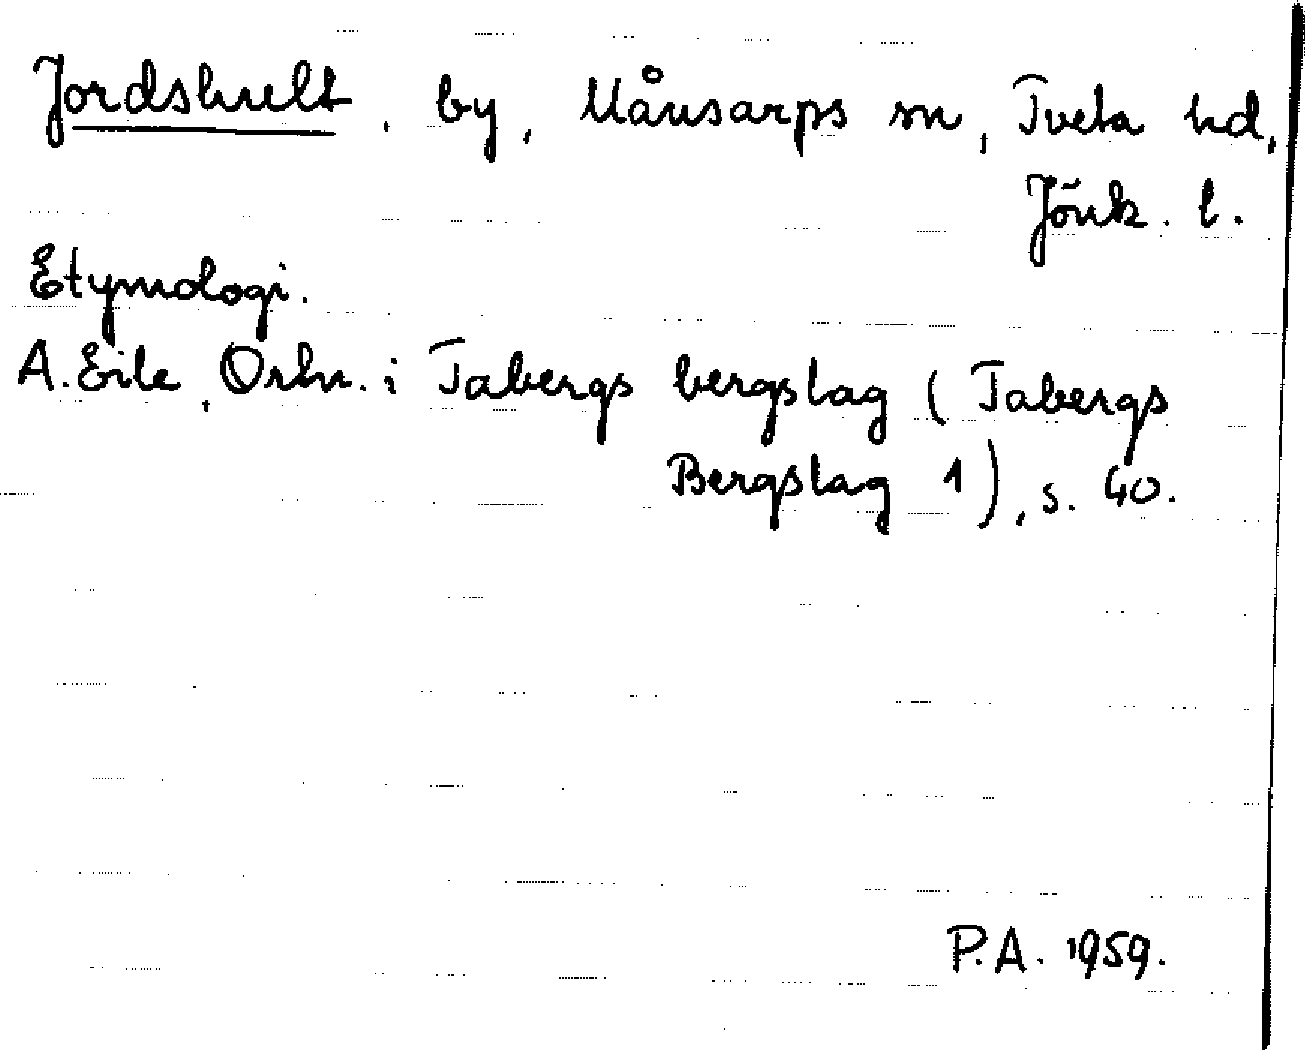 Jordshult, by, Månsarps sn, Tveta hd,
Jönk. l.
Etymologi.
A. Eile, Ortn. i Tabergs bergslag (Tabergs
Bergslag 1), s. 40.
P.A. 1959.